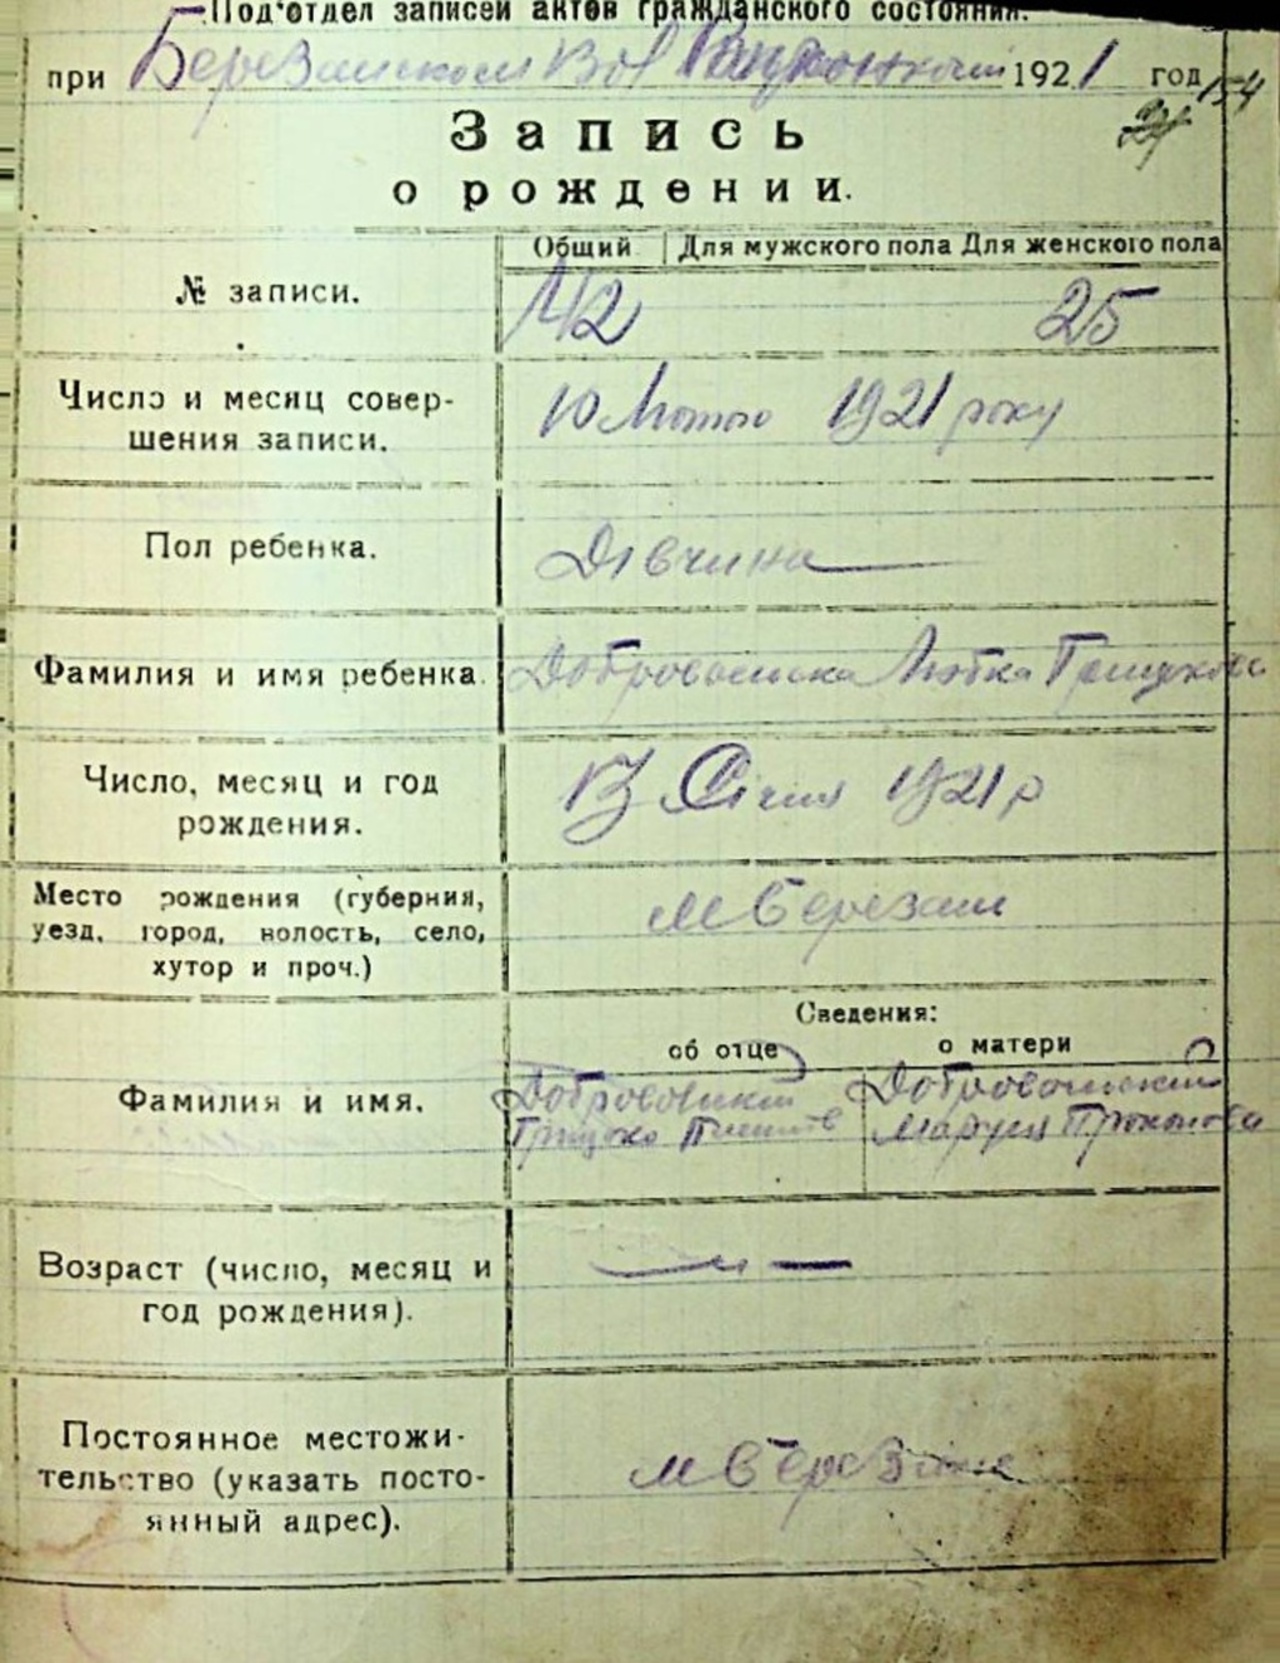 Под'отдел записей актов гражданского состояния.
при Березанском Вол 1921 год 154
Запись
о рождении.
Общий Для мужского пола Для женского пола
№ записи. 42 25
Число и месяц совер- 10 Лютого 1921 року
шения записи.
Пол ребенка. Дівчина
Фамилия и имя ребенка. Добровольска Любка Грицкова
Число, месяц и год 13 Січня 1921 р
рождения.
Место рождения (губерния, м Березань
уезд, город, волость, село,
хутор и проч.)
Сведения:
об отце о матери
Фамилия и имя. Добровольский Добровольский
Грицько Маруся Прокопова
Возраст (число, месяц и
год рождения).
Постоянное местожи-
тельство (указать посто- м Березань
янный адрес).